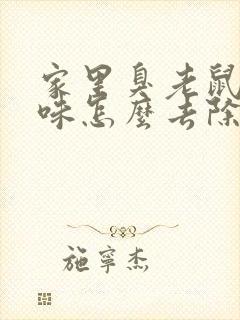 家里臭老鼠
味怎麼去除
施寧杰